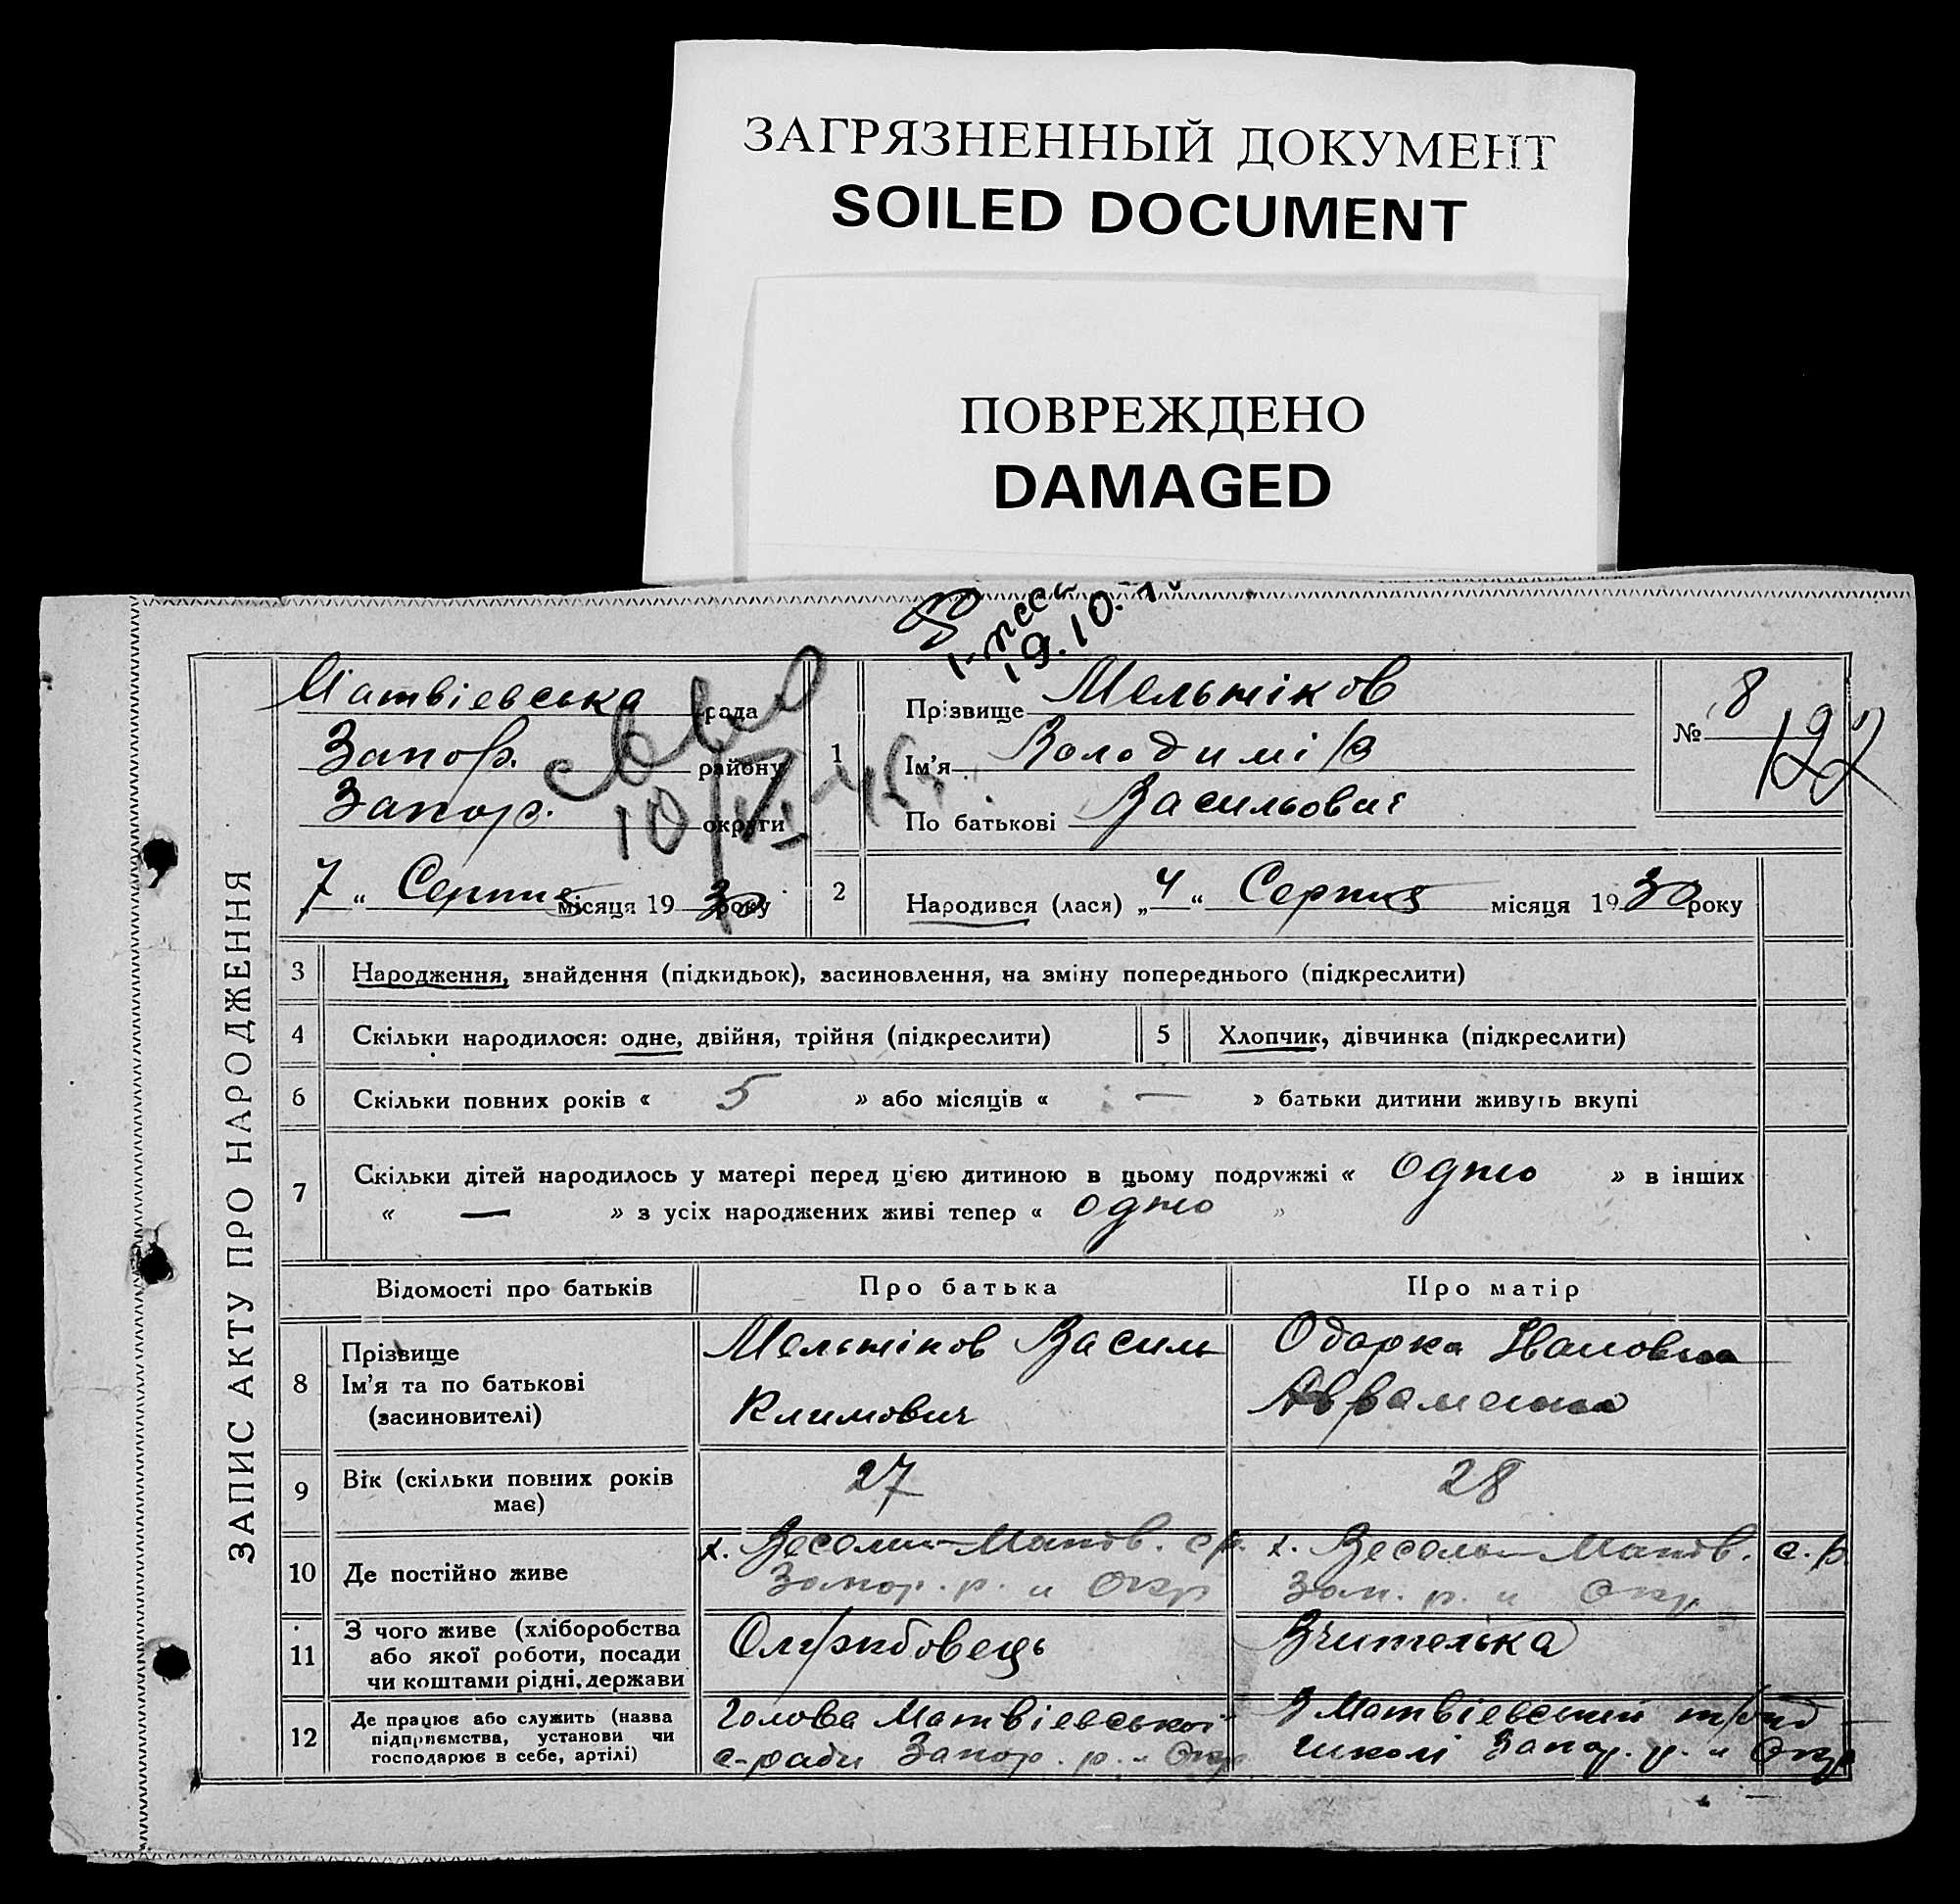 ЗАГРЯЗНЕННЫЙ ДОКУМЕНТ
SOILED DOCUMENT
ПОВРЕЖДЕНО
DAMAGED
19.10.
ЗАПИС АКТУ ПРО НАРОДЖЕННЯ
Матвіевська рада
Запор. району
Запор. округи
7 „ Серпня місяця 19 30 року
10/VI 45
1
Прізвище Мельніков
Ім'я Володимір
По батькові Васильович
№ 8
122
2
Народився (лася) „ 4 “ Серпня місяця 19 30 року
3 Народження, знайдення (підкидьок), засиновлення, на зміну попереднього (підкреслити)
4 Скільки народилося: одне, двійня, трійня (підкреслити) 5 Хлопчик, дівчинка (підкреслити)
6 Скільки повних років « 5 » або місяців « — » батьки дитини живуть вкупі
7 Скільки дітей народилось у матері перед цією дитиною в цьому подружжі « Одно » в інших
« — » з усіх народжених живі тепер « Одно »
Відомості про батьків Про батька Про матір
8 Прізвище
Ім'я та по батькові
(засиновителі)
Мельніков Василь
Климович
Одарка Ивановна
Авраменко
9 Вік (скільки повних років
має)
27
28
10 Де постійно живе
х. Веселий Матв. с/р.
Запор. р. и Окр
х. Веселий Матв. с.р.
Зап. р. и Окр
11 З чого живе (хліборобства
або якої роботи, посади
чи коштами рідні, держави
Вчителька
12 Де працює або служить (назва
підприємства, установи чи
господарює в себе, артілі)
Голова Матвіевської
с-ради Запор. р. и Окр
В Матвіевський труд
школі Запор. р. и Окр